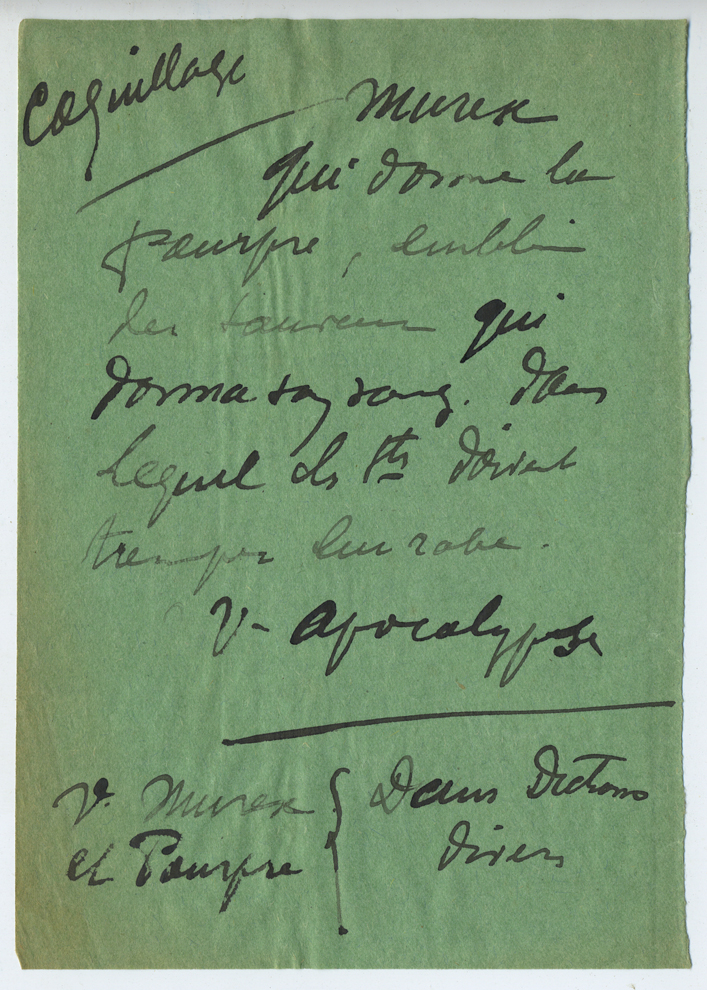 Coquillage
Murex
qui donne la
pourpre, emblème
du sauveur qui
donna son sang. Dans
lequel les Sts doivent
tremper leur robe.
V- Apocalypse
V. Murex } Dans Dictions
et Pourpre } divers